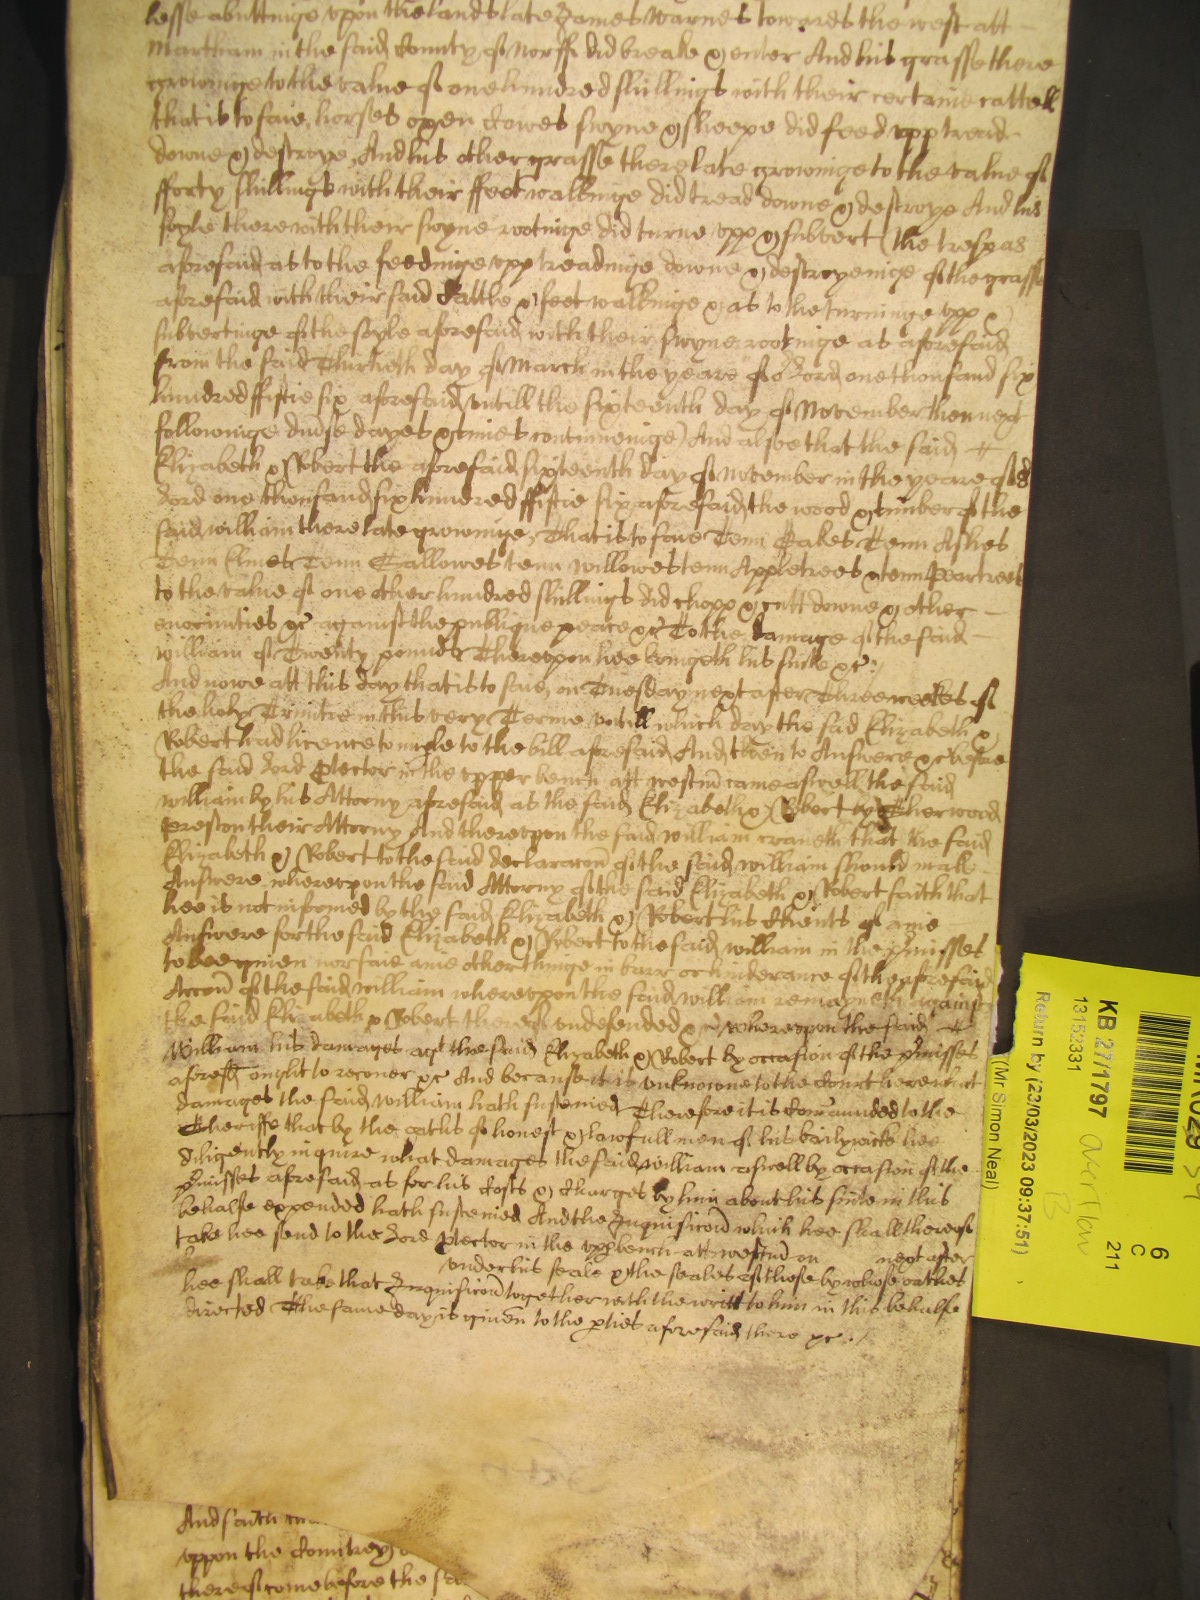 lesse abuttinge vpon the lands late James Warnes towards the west att
Martham in the said County of Norff did breake & enter And his grasse there
growinge to the value of one hundred shillings with their certaine cattell
that is to saie, horses oxen Cowes swyne & sheepe did feed vpp tread
downe & destroye, And his other grasse there late growinge to the value of
fforty shillings with their ffeet walkinge did tread downe & destroye And his
soyle there with their swyne rootinge did turne vpp & subvert (the trespas
aforesaid as to the feedinge vpp treadinge downe & destroyeinge of the grasse
aforesaid with their said Cattle & feet walkinge & as to the turninge vpp &
subvertinge of the soyle aforesaid with their swyne rootinge as aforesaid
from the said Thirtieth day of March in the yeare of or Lord one thousand six
hundred ffiftie six aforesaid vntill the sixteenth day of November then next
followinge diuse dayes & times continueinge) And alsoe that the said
Elizabeth & Robert the aforesaid sixteenth day of November in the yeare of or
Lord one thousand six hundred ffiftie six aforesaid the wood & timber of the
said william there late growinge, That is to saie Tenn Oakes Tenn Ashes
Tenn Elmes Tenn Sallowes tenn willowes tenn Appletrees & tenn Peartrees
to the value of one other hundred shillings did chopp & cutt downe & other
enormities &c against the publique peace &c To the damage of the said
william of Twenty pounds Therevpon hee bringeth his suite &c:/
And nowe att this day that is to saie, on Tuesday next after Three weekes of
the holy Trinitie in this very Terme vntill which day the said Elizabeth &
Robert had licence to imple to the bill aforesaid And then to Answere &c before
the said Lord Ptector in the vpper bench att westm came aswell the said
william by his Attorny aforesaid as the said Elizabeth & Robert by Sherwood
Preston their Attorny And therevpon the said william craueth that the said
Elizabeth & Robert to the said declaracon of the said william should make
Answere wherevpon the said Attorny of the said Elizabeth & Robert saith that
hee is not informed by the said Elizabeth & Robert his Clients of anie
Answere for the said Elizabeth & Robert to the said william in the pmisses
to bee giuen nor saie anie other thinge in barr or hinderance of the aforesaid
Accon of the said william wherevpon the said william remayneth against
the said Elizabeth & Robert thereof vndefended &c wherevpon the said
William his damages agt the said Elizabeth & Robert by occasion of the pmisses
aforesd ought to recouer &c And because it is vnknowne to the Court here what
damages the said william hath susteined Therefore it is Comaunded to the
Sheriffe that by the oathes of honest & lawfull men of his bailywicke hee
diligently inquire what damages the said william aswell by occasion of the
pmisses aforesaid as for his Costs & Charges by him about his suite in this
behalfe expended hath susteined And the Inquisicon which hee shall thereof
take hee send to the Lord Ptector in the vpp bench att westm on next after
vnder his seale & the seales of those by whose oathes
hee shall take that Inquisicon together with the writt to him in this behalfe
directed The same day is giuen to the pties aforesaid there &c./
And saith
vppon the Countrey
thereof come before the
KB 27/1797
13152331
Return by (23/03/2023 09:37:51)
(Mr Simon Neal)
6
C
211